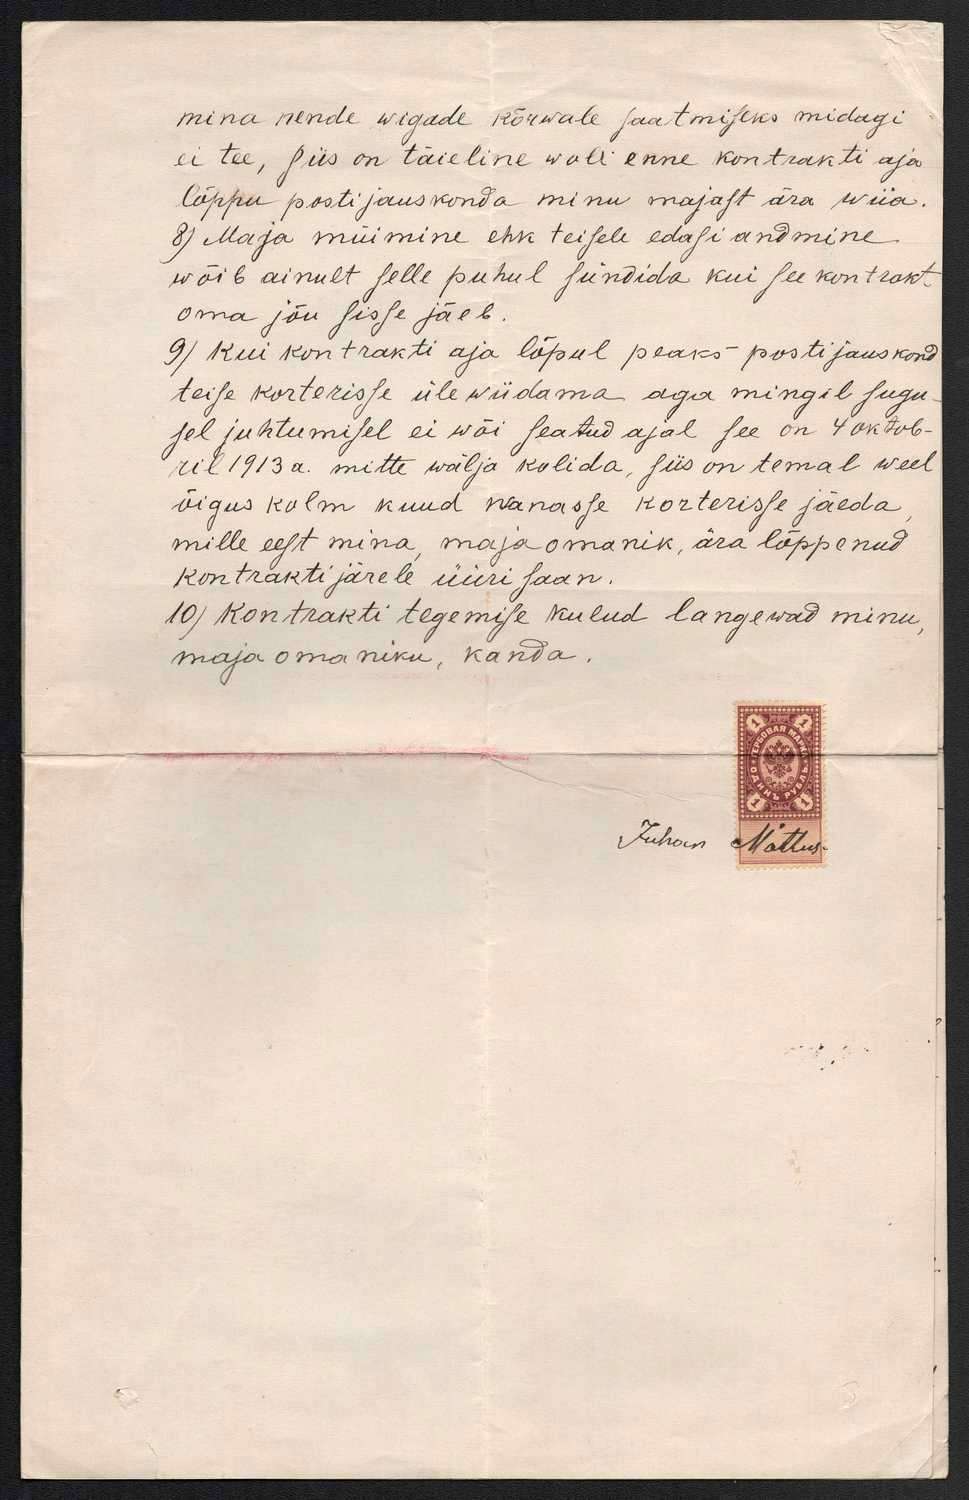 mina nende wigade kõrwale saatmiseks midagi
ei tee, siis on täieline woli enne kontrakti aja
lõppu postijauskonda minu majast ära wiia.
8) Maja müimine ehk teisele edasi andmine
wõib ainult selle puhul sündida kui see kontrakt
oma jõu sisse jäeb.
9) Kui kontrakti aja lõpul peaks postijauskond
teise korterisse üle wiidama aga mingil sugu-
sel juhtumisel ei wõi seatud ajal see on 4 oktob-
ril 1913 a. mitte wälja kolida, siis on temal weel
õigus kolm kuud wanasse korterisse jäeda,
mille eest mina, maja omanik, ära lõppenud
kontrakti järele üüri saan.
10) Kontrakti tegemise kulud langewad minu,
maja omaniku, kanda.
1 1
ГЕРБОВАЯ МАРКА
ОДИНЪ РУБЛЬ
1 1
Juhan Mättus